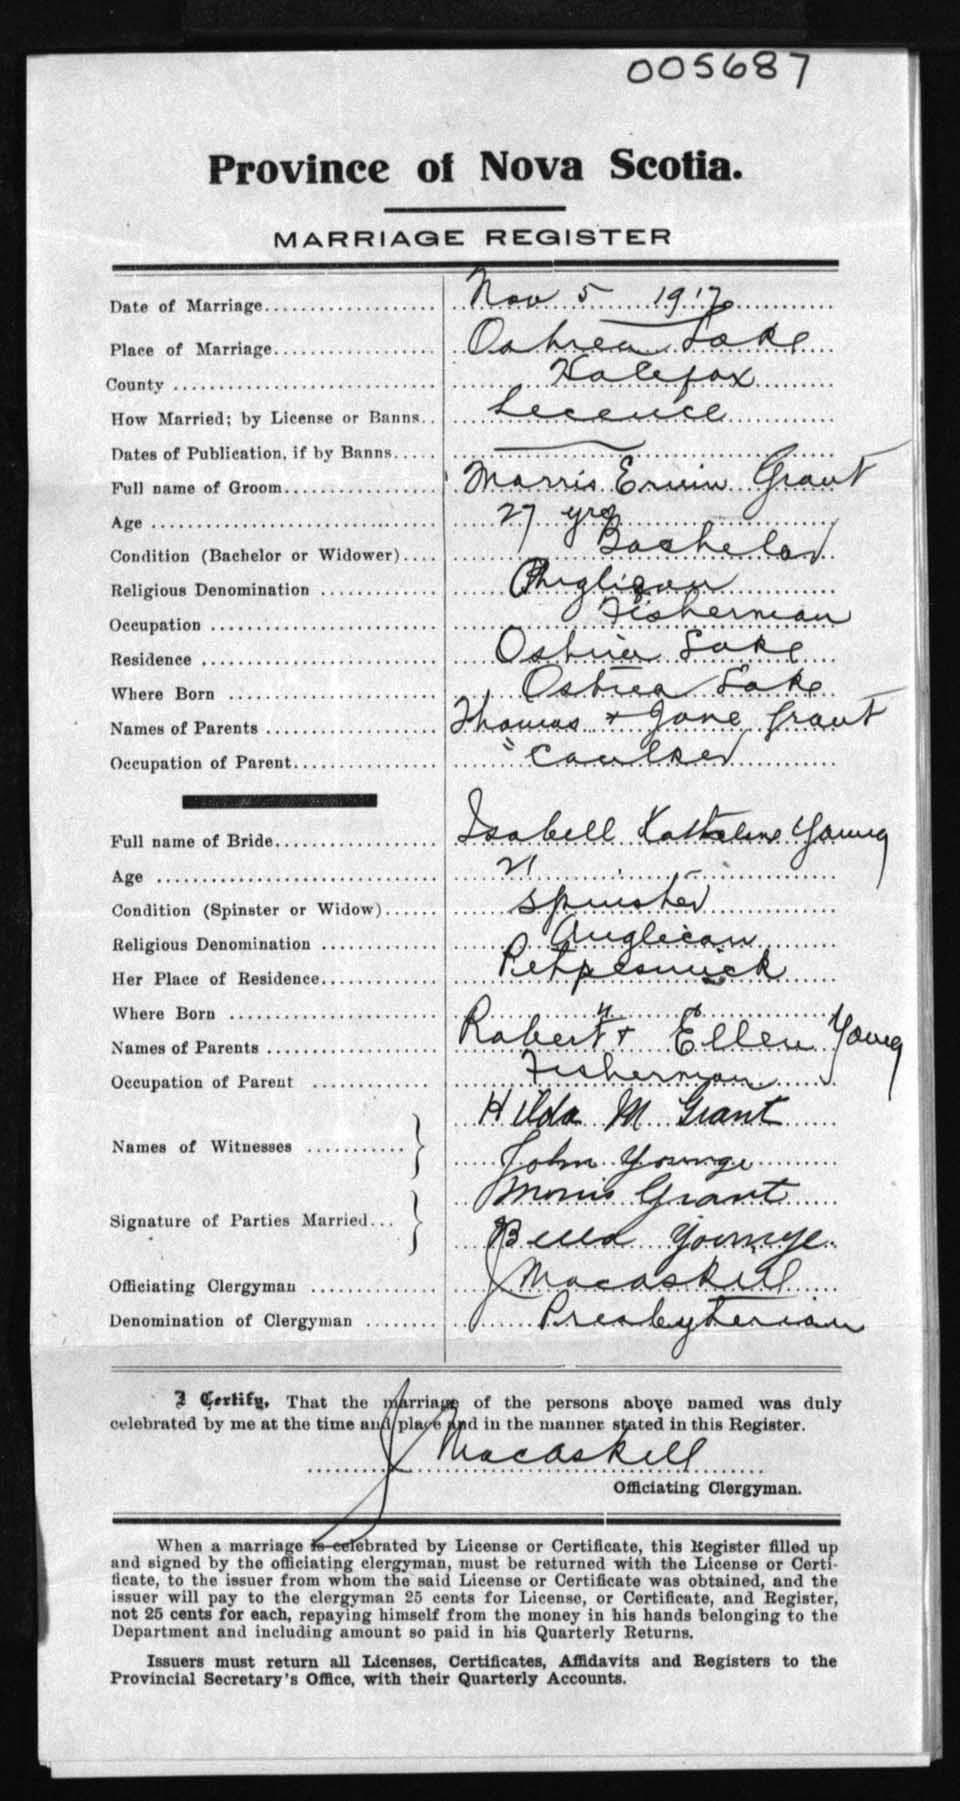 005687
Province of Nova Scotia.
MARRIAGE REGISTER
Date of Marriage.................. Nov 5 1917
Place of Marriage.................. Ostrea Lake
County .......................... Halifax
How Married; by License or Banns.. Licence
Dates of Publication, if by Banns..... ——
Full name of Groom............... Morris Ervin Grant
Age ............................ 27 yrs
Condition (Bachelor or Widower).... Bachelor
Religious Denomination ............ Anglican
Occupation ....................... Fisherman
Residence ........................ Ostrea Lake
Where Born ..................... Ostrea Lake
Names of Parents ................. Thomas + Jane Grant
Occupation of Parent.............. " Caulker
Full name of Bride................ Isabell Kathalene Young
Age ............................ 21
Condition (Spinster or Widow)...... Spinster
Religious Denomination ............ Anglican
Her Place of Residence............ Petpeswick
Where Born ..................... " "
Names of Parents ................. Robert + Ellen Young
Occupation of Parent ............ Fisherman
Names of Witnesses ........... } Hilda M Grant
John Younge
Signature of Parties Married... } Morris Grant
Bella Younge
Officiating Clergyman ............. J Macaskill
Denomination of Clergyman ........ Presbyterian
I Certify, That the marriage of the persons above named was duly
celebrated by me at the time and place and in the manner stated in this Register.
J Macaskill
Officiating Clergyman.
When a marriage is celebrated by License or Certificate, this Register filled up
and signed by the officiating clergyman, must be returned with the License or Certi-
ficate, to the issuer from whom the said License or Certificate was obtained, and the
issuer will pay to the clergyman 25 cents for License, or Certificate, and Register,
not 25 cents for each, repaying himself from the money in his hands belonging to the
Department and including amount so paid in his Quarterly Returns.
Issuers must return all Licenses, Certificates, Affidavits and Registers to the
Provincial Secretary's Office, with their Quarterly Accounts.